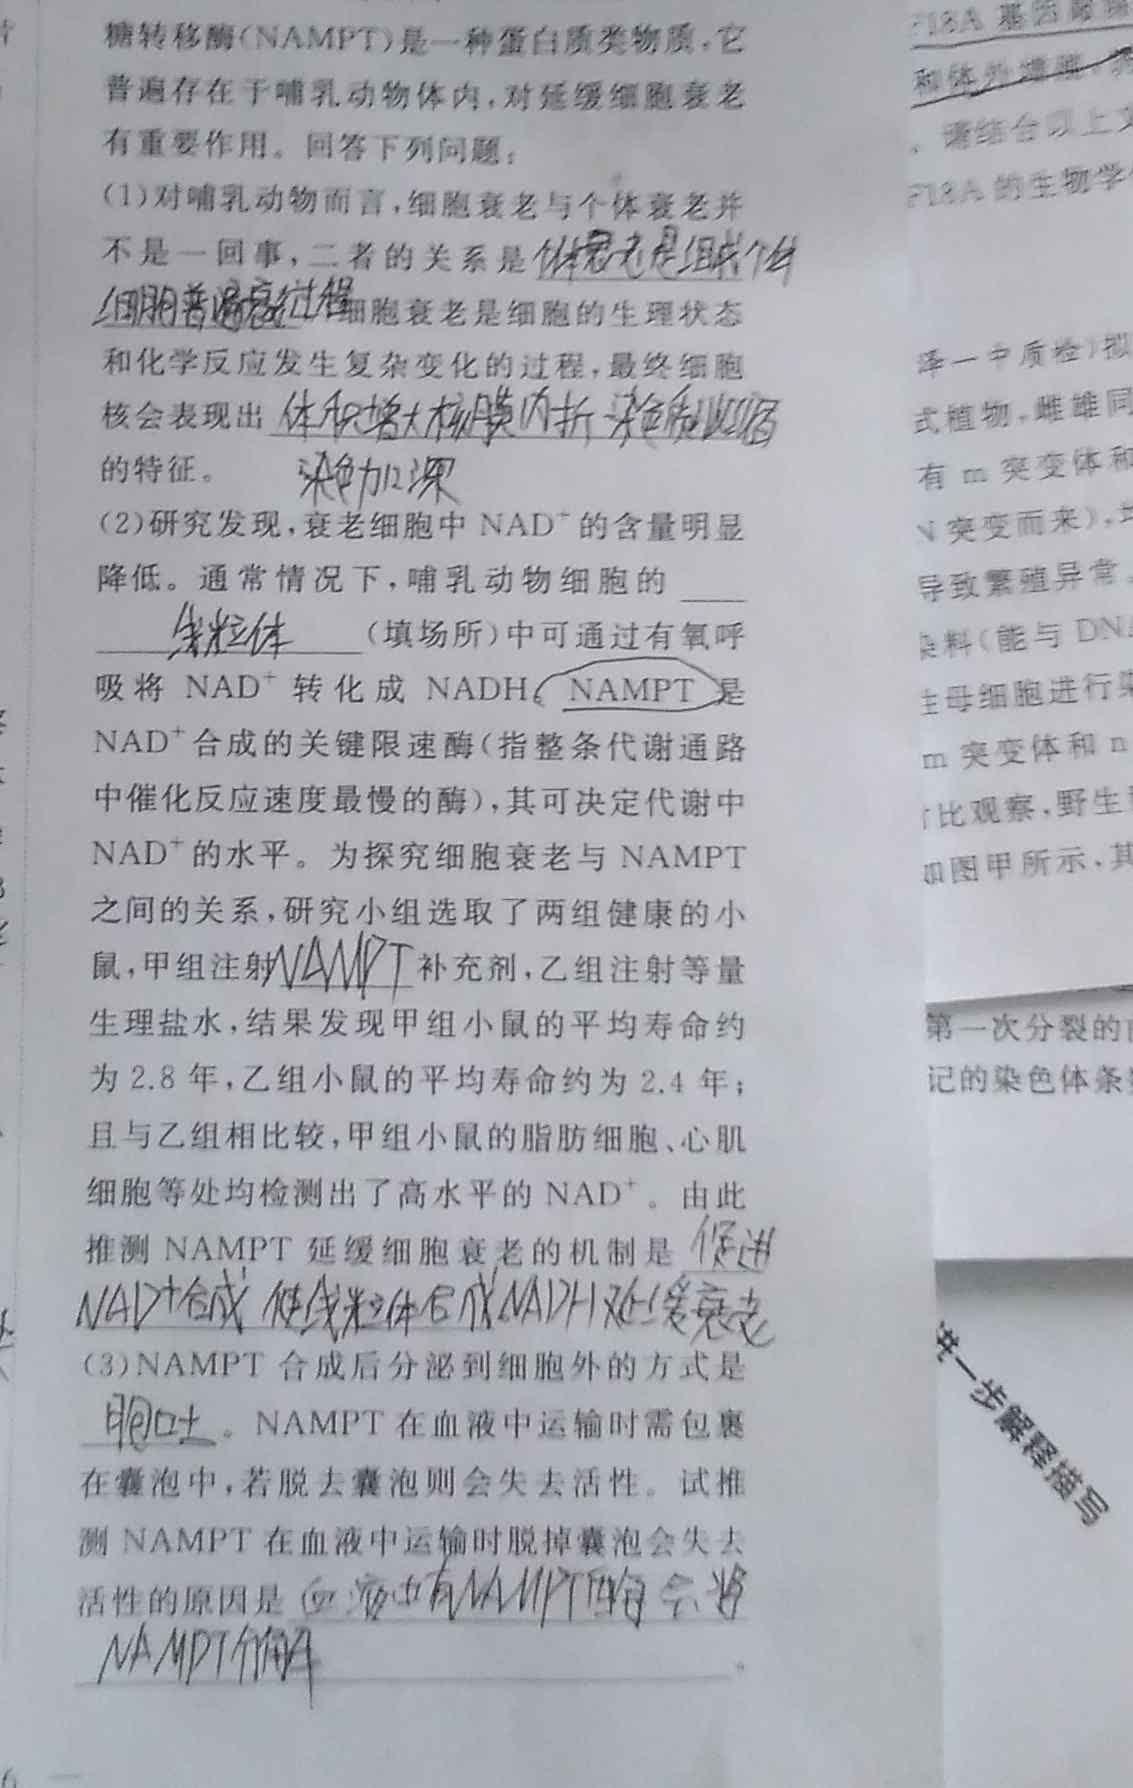 糖转移酶(NAMPT)是一种蛋白质类物质,它
普遍存在于哺乳动物体内,对延缓细胞衰老
有重要作用。回答下列问题:
(1)对哺乳动物而言,细胞衰老与个体衰老并
不是一回事,二者的关系是个体衰老是组成个体
细胞普遍衰老过程 细胞衰老是细胞的生理状态
和化学反应发生复杂变化的过程,最终细胞
核会表现出 体积增大核膜内折 染色质收缩
的特征。 染色加深
(2)研究发现,衰老细胞中 NAD⁺ 的含量明显
降低。通常情况下,哺乳动物细胞的
线粒体 (填场所)中可通过有氧呼
吸将 NAD⁺ 转化成 NADH。NAMPT 是
NAD⁺合成的关键限速酶(指整条代谢通路
中催化反应速度最慢的酶),其可决定代谢中
NAD⁺的水平。为探究细胞衰老与 NAMPT
之间的关系,研究小组选取了两组健康的小
鼠,甲组注射NAMPT补充剂,乙组注射等量
生理盐水,结果发现甲组小鼠的平均寿命约
为 2.8 年,乙组小鼠的平均寿命约为 2.4 年;
且与乙组相比较,甲组小鼠的脂肪细胞、心肌
细胞等处均检测出了高水平的 NAD⁺。由此
推测 NAMPT 延缓细胞衰老的机制是 促进
NAD⁺合成 使线粒体合成NADH延缓衰老
(3)NAMPT 合成后分泌到细胞外的方式是
胞吐 。NAMPT 在血液中运输时需包裹
在囊泡中,若脱去囊泡则会失去活性。试推
测 NAMPT 在血液中运输时脱掉囊泡会失去
活性的原因是 血液中有NAMPT酶会将
NAMPT分解 。
F18A 基因
和体外
,请结合以上文
F18A 的生物学
泽一中质检)拟
式植物,雌雄同
有 m 突变体和
突变而来),
导致繁殖异常
染料(能与 DNA
母细胞进行染
m 突变体和 n
比观察,野生
如图甲所示,其
第一次分裂的
记的染色体条
进一步解释描写
6